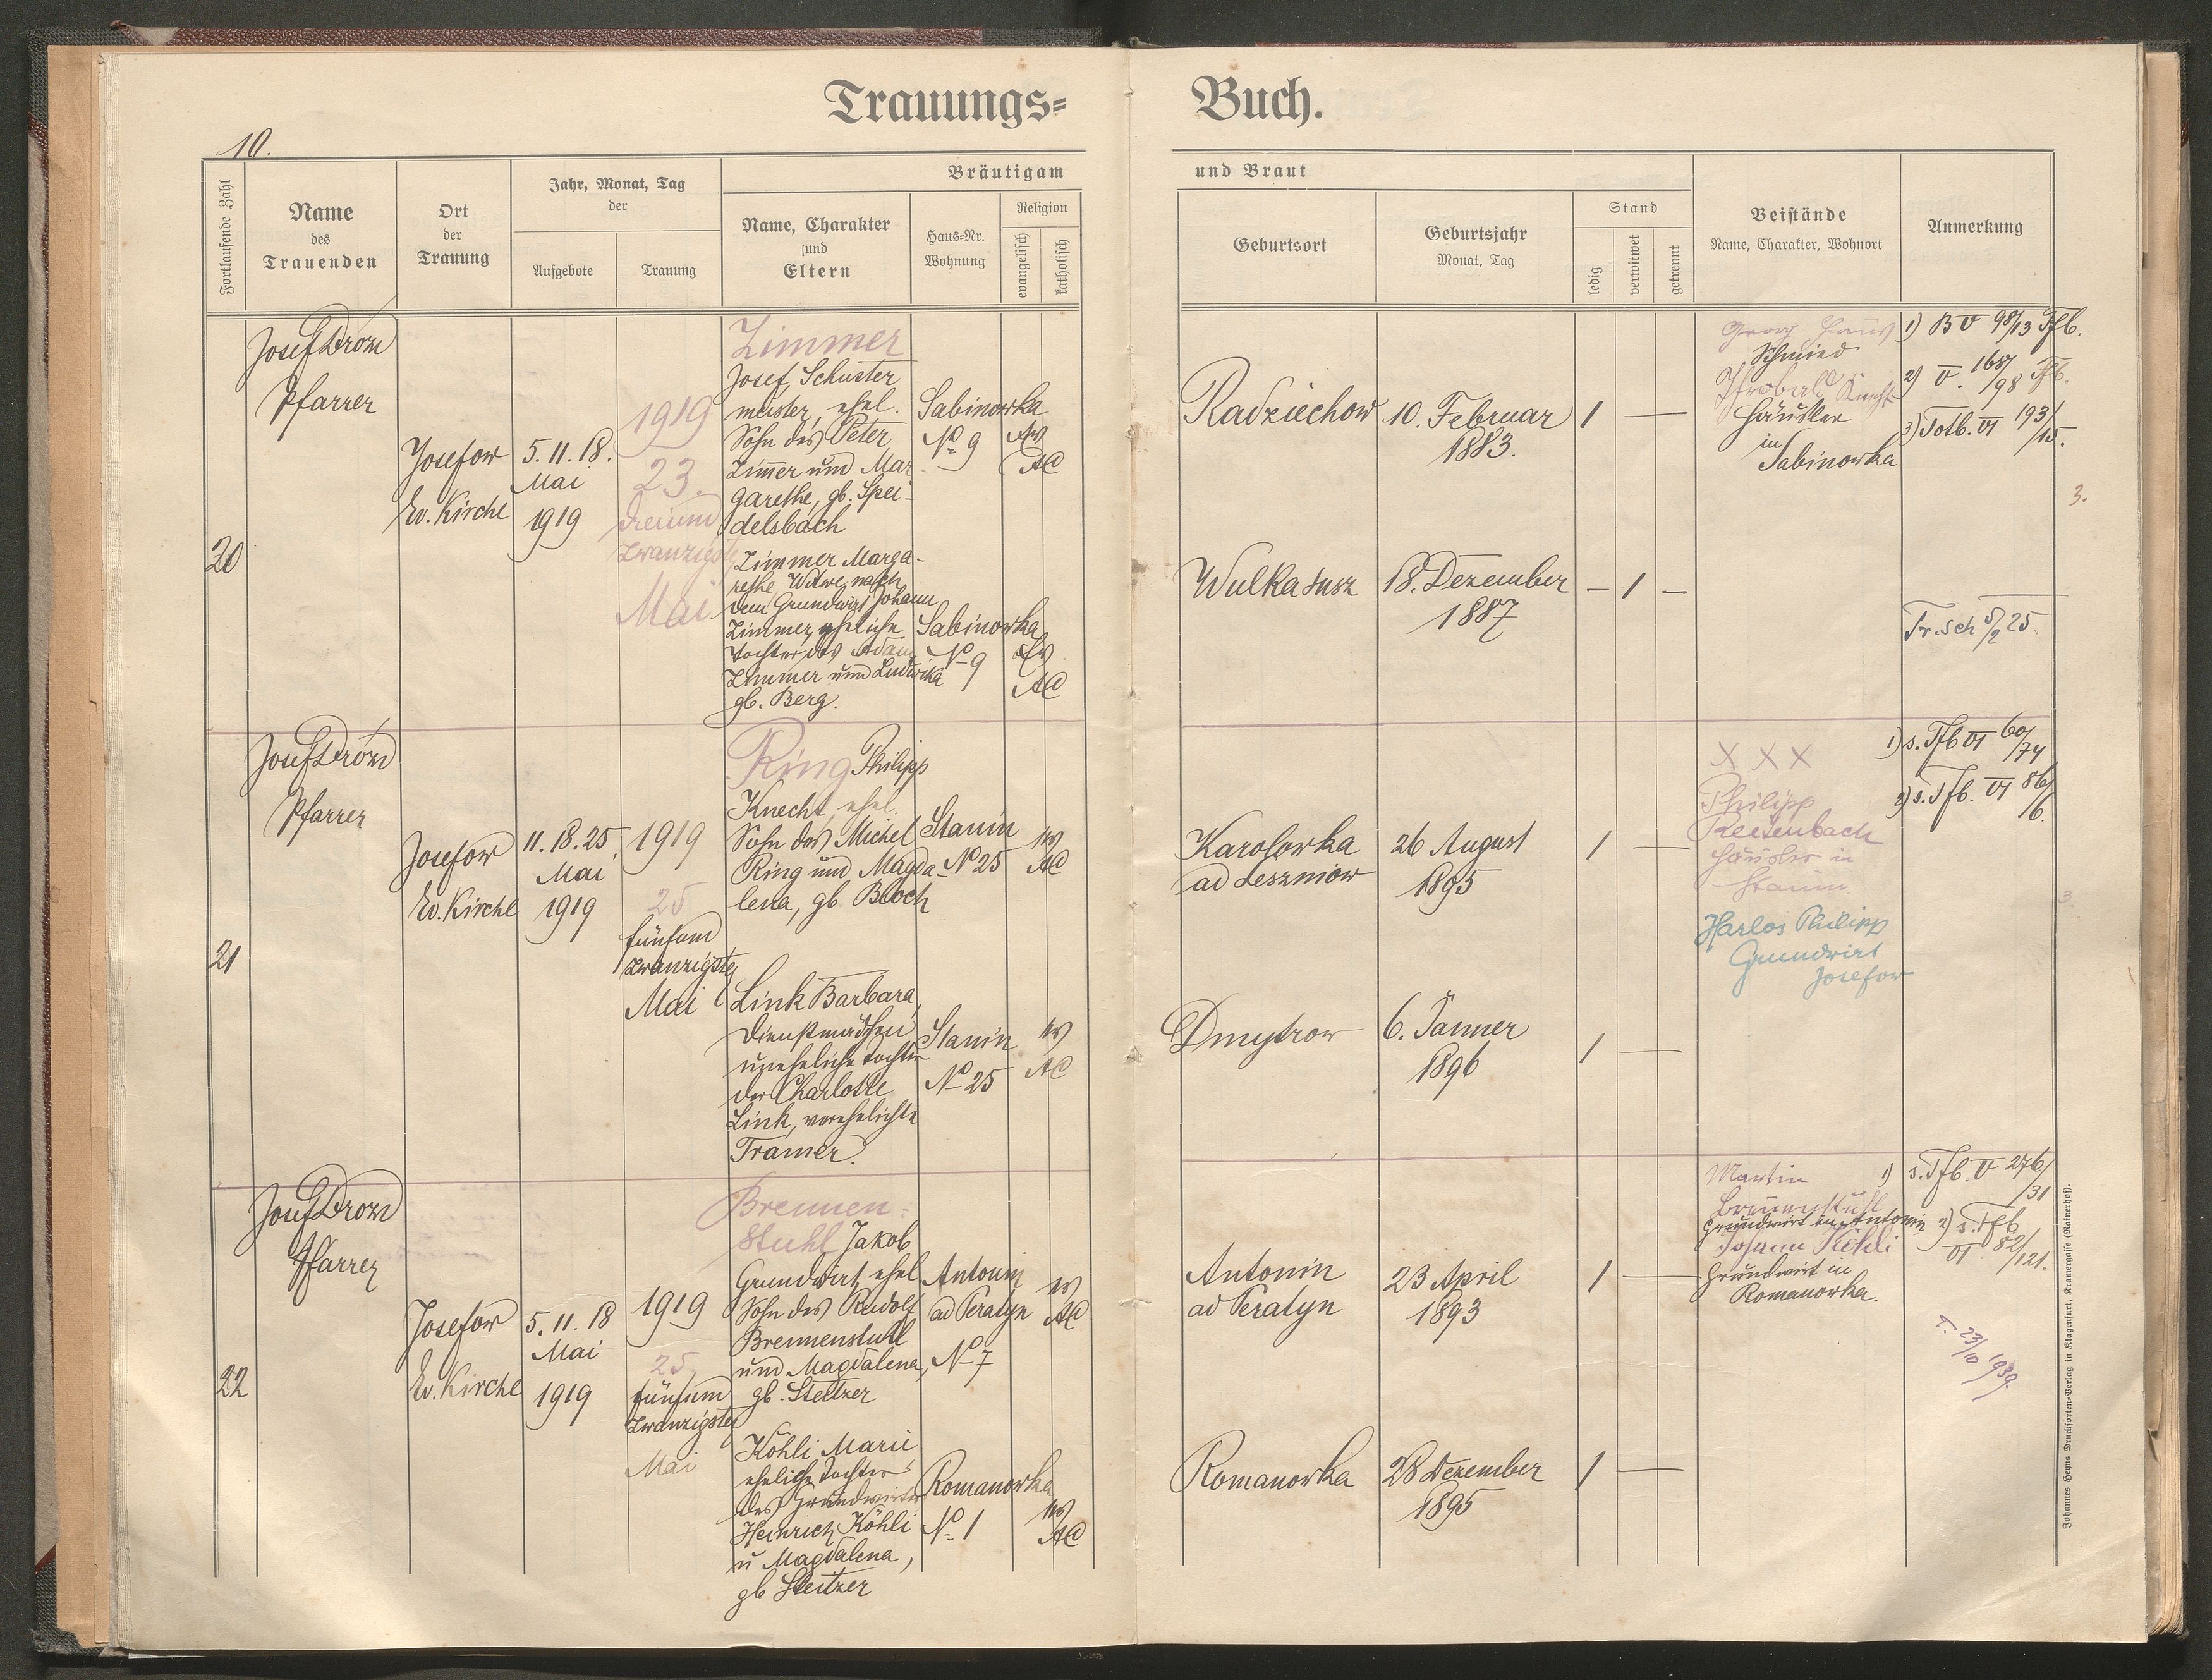 Trauungs=
Buch.
10.
Fortlaufende Zahl
Name
des
Trauenden
Ort
der
Trauung
Jahr, Monat, Tag
der
Aufgebote
Trauung
Bräutigam
Name, Charakter
und
Eltern
Haus=Nr.
Wohnung
Religion
evangelisch
katholisch
und Braut
Geburtsort
Geburtsjahr
Monat, Tag
Stand
ledig
verwitwet
getrennt
Beistände
Name, Charakter, Wohnort
Anmerkung
20
Josef Drozd
Pfarrer
Josefow
Ev. Kirche
5. 11. 18.
Mai
1919
1919
23.
dreiund
zwanzigste
Mai
Zimmer
Josef, Schuster
meister, ehel.
Sohn des Peter
Zimmer und Mar
garethe, gb. Spei-
delsbach
Sabinowka
No 9
Ev
AC
Radziechow
10. Februar
1883.
1
Georg
Schmied
Häusler
in
Sabinowka
1) B V 98/13 Tfb.
2) V. 168/98 Tfb.
3) Totb. VI 193/15.
3.
Zimmer Marga-
rethe Witwe nach
dem Grundwirt Johann
Zimmer, eheliche
Tochter des Adam
Zimmer und Ludwika
gb. Berg.
Sabinowka
No 9
Ev
AC
Wulka susz
18. Dezember
1887
– 1 –
Tr. sch 5/2 25.
21
Josef Drozd
Pfarrer
Josefow
Ev. Kirche
11. 18. 25
Mai
1919
1919
25
fünfund
zwanzigster
Mai
Ring Philipp
Knecht, ehel.
Sohn des Michel
Ring und Magda-
lena, gb. Bloch
Stanin
No 25
ev
AC
Karolowka
ad Leszniow
26 August
1895
1
X X X
Philipp
Reisenbach
Häusler in
Stanin.
Harlos Philipp
Grundwirt
Josefow
1) s. Tfb VI 60/74
2) s. Tfb. VI 86/6.
3.
Link Barbara,
Dienstmädchen
uneheliche Tochter
der Charlotte
Link, verehelichte
Tramer.
Stanin
No 25
ev
AC
Dmytrow
6. Jänner
1896
1
22
Josef Drozd
Pfarrer
Josefow
Ev. Kirche
5. 11. 18
Mai
1919
1919
25,
fünfund
zwanzigster
Mai
Brennen-
stuhl Jakob
Grundwirt, ehel.
Sohn des Rudolf
Brennenstuhl
und Magdalena,
gb. Steitzer
Antonin
ad Peratyn
No 7
ev
AC
Antonin
ad Peratyn
23 April
1893
1
Martin
Brennenstuhl
Grundwirt in Antonin
Johann Köhli
Grundwirt in
Romanowka.
1) s. Tfb. V 276/31
2) s. Tfb
VI. 82/121.
T. 23/10 1939.
Köhli Marie
eheliche Tochter
des Grundwirten
Heinrich Köhli
u Magdalena,
gb Steitzer
Romanowka
No 1
ev
AC
Romanowka
28 Dezember
1895
1
Johannes Heyns Drucksorten=Verlag in Klagenfurt, Kramergasse (Rainerhof).